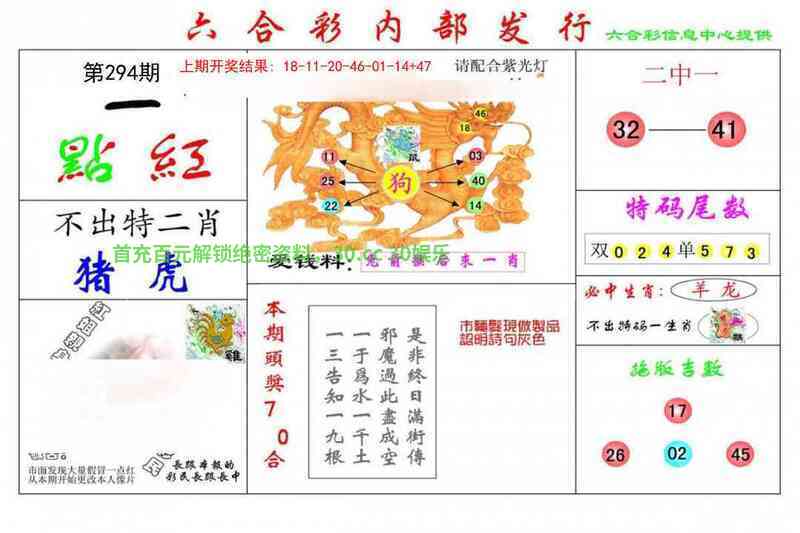 六合彩内部发行
六合彩信息中心提供
第294期
上期开奖结果：18-11-20-46-01-14+47
请配合紫光灯
一
點 紅
不出特二肖
猪 虎
首充百元解锁绝密资料
46
18
鼠
11
03
25
狗
40
22
14
爱钱料：
兔前猴后来一肖
二中一
32
41
特码尾数
双 0 2 4 单 5 7 3
必中生肖：羊 龙
不出特码一生肖
绝版吉数
17
26
02
45
雞
市面发现大量假冒一点红
从本期开始更改本人像片
長跟本報的
彩民長跟長中
本期頭奬70合
是非終日滿街傳
邪魔過此盡成空
一于爲水一千土
一三告知一九根
市面髮現倣製品
認明詩句灰色